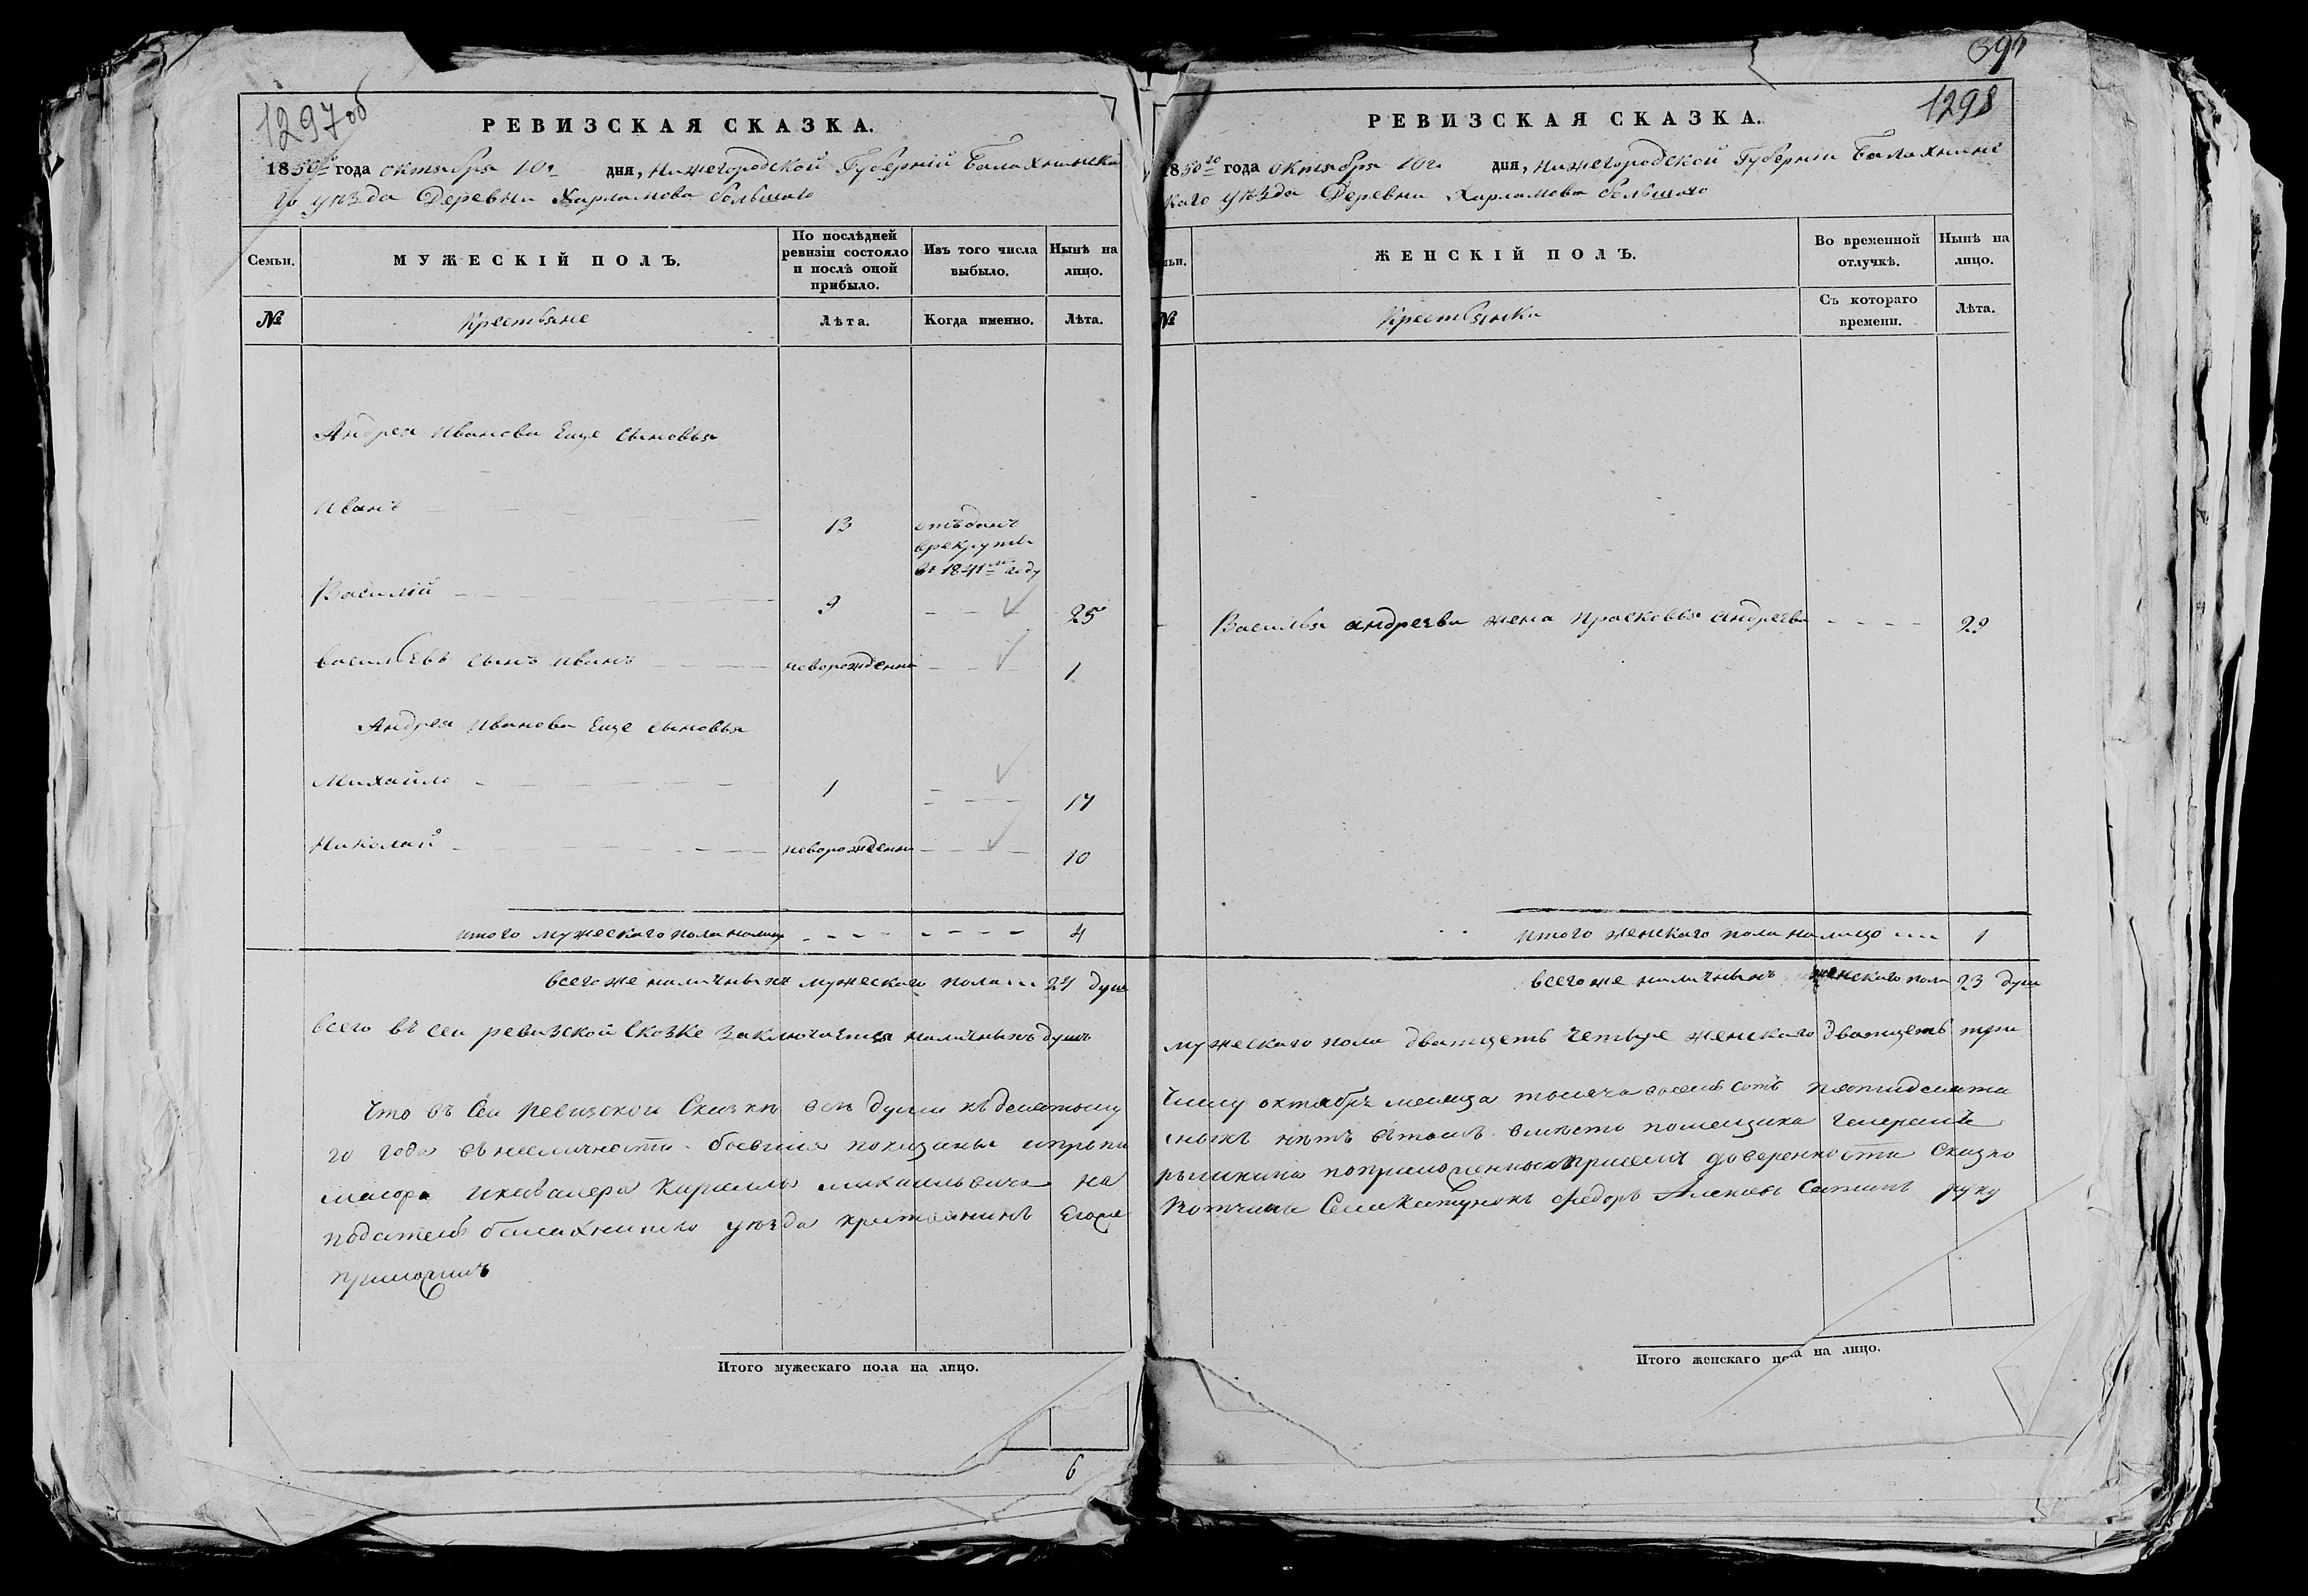 1297об
РЕВИЗСКАЯ СКАЗКА.
1850го года октября 10го дня, Нижегородской Губерніи Балахнинска
го уѣзда Деревни Харламова большаго
Семьи.
МУЖЕСКІЙ ПОЛЪ.
По послѣдней ревизіи состояло и послѣ оной прибыло.
Изъ того числа выбыло.
Нынѣ на лицо.
№
Крестьяне
Лѣта.
Когда именно.
Лѣта.
Андрея Иванова Еще сыновья
Иванъ 13 отъданъ
врекруты
въ 1841м году
Василій 9 25
Васильевъ сынъ иванъ новорожденны 1
Андрея Иванова Еще сыновья
Михайло 1 17
Николай новорожденны 10
итого мужескаго пола налицо 4
всего же наличныхъ мужескаго пола 24 души
всего въ сеи ревизской Сказке Заключаитца наличныхъ душъ
Что въ Сеи ревизскои Сказки всѣ души къ десятому
го года въ неличности бывшия показаны ипропи
маиора икавалера Кирилы михаильвича На
подателѣ балахнинско уѣзда крестьянинъ Егора
приложилъ
Итого мужескаго пола на лицо.
6
391
1298
РЕВИЗСКАЯ СКАЗКА.
1850го года октября 10го дня, Нижегородской Губерніи Балахнинс
каго уѣзда Деревни Харламова большаго
ьи.
ЖЕНСКІЙ ПОЛЪ.
Во временной отлучкѣ.
Нынѣ на лицо.
№
Крестьянки
Съ котораго времени.
Лѣта.
Василья андреева жена прасковья андреева 29
итого женскаго пола налицо 1
всего же наличныхъ женскаго пола 23 души
мужескаго пола дватцеть четыре женскаго дватцеть три
Числу октября месица тысяча восемь сотъ пятидесята
сныхъ нѣтъ втомъ вместо помещика генералъ
рышкина поприложенной при семъ доверенности Сказко
Вотчины Семи

Федоръ Алексевъ Сатинъ руку
Итого женскаго пола на лицо.